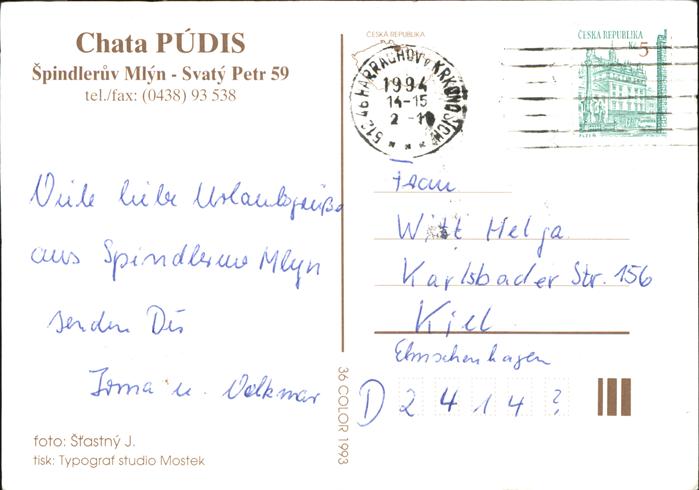 Chata PÚDIS
Špindlerův Mlýn - Svatý Petr 59
tel./fax: (0438) 93 538
Viele liebe Urlaubsgrüße
aus Spindleruv Mlyn
senden Dir
Irma u. Volkmar
foto: Šťastný J.
tisk: Typograf studio Mostek
36 COLOR 1993
ČESKÁ REPUBLIKA
512 46 HARRACHOV V KRKONOŠÍCH
1994
14-15
ČESKÁ REPUBLIKA
Kč 5
Frau
Witt Helga
Karlsbader Str. 156
Kiel
Elmschenhagen
D 2 4 1 4 ?